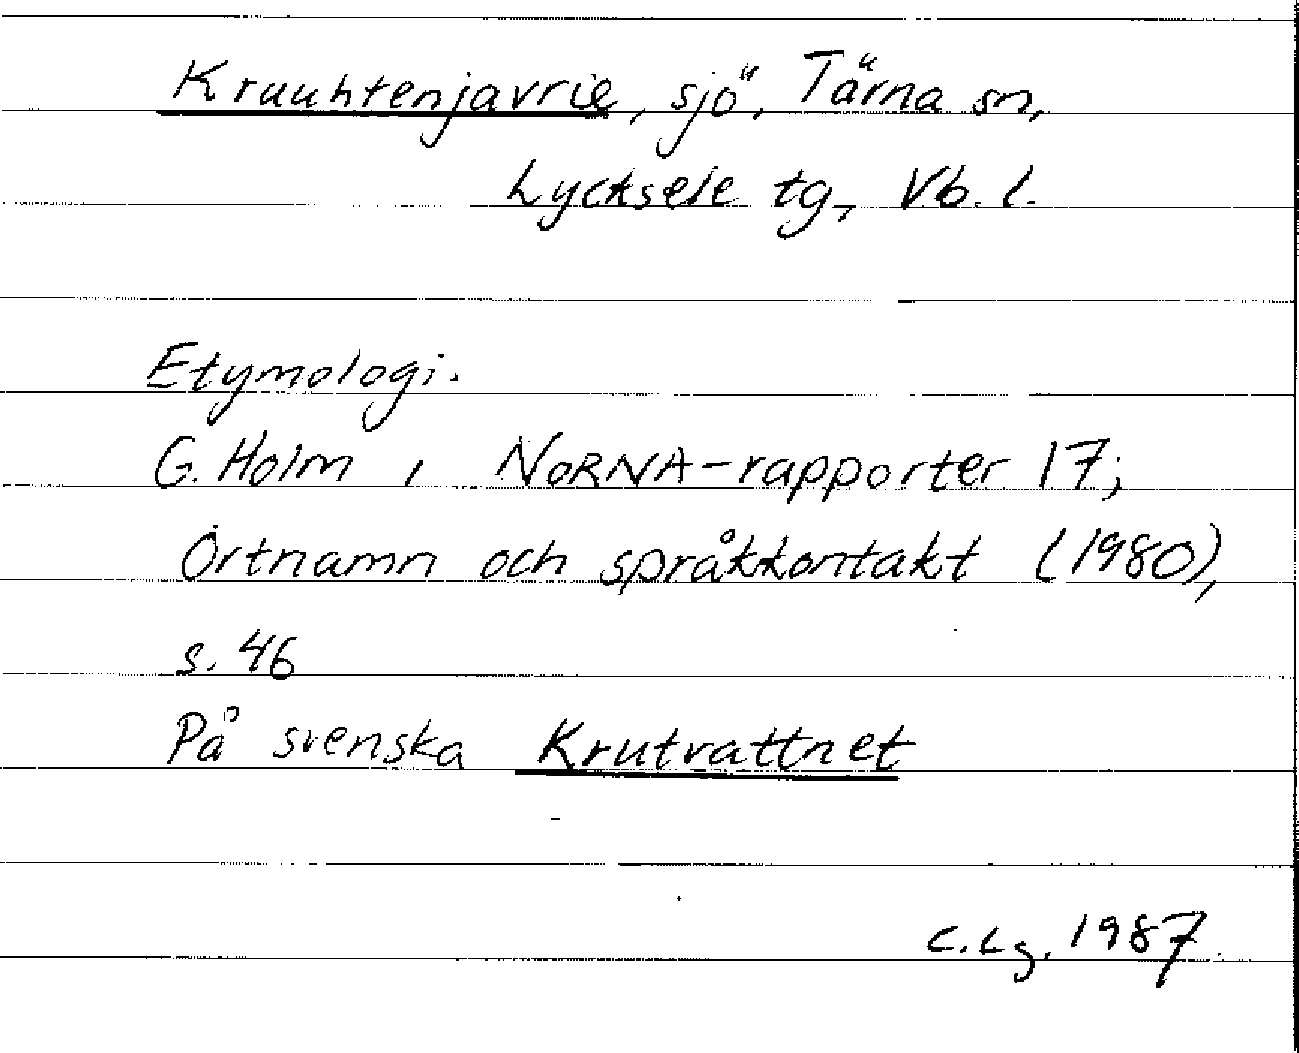 Kruuhtenjavrie, sjö, Tärna sn,
Lycksele tg, Vb. l.
Etymologi.
G. Holm, NORNA-rapporter 17;
Ortnamn och språkkontakt (1980),
s. 46
På svenska Krutvattnet
C. Lg. 1987.